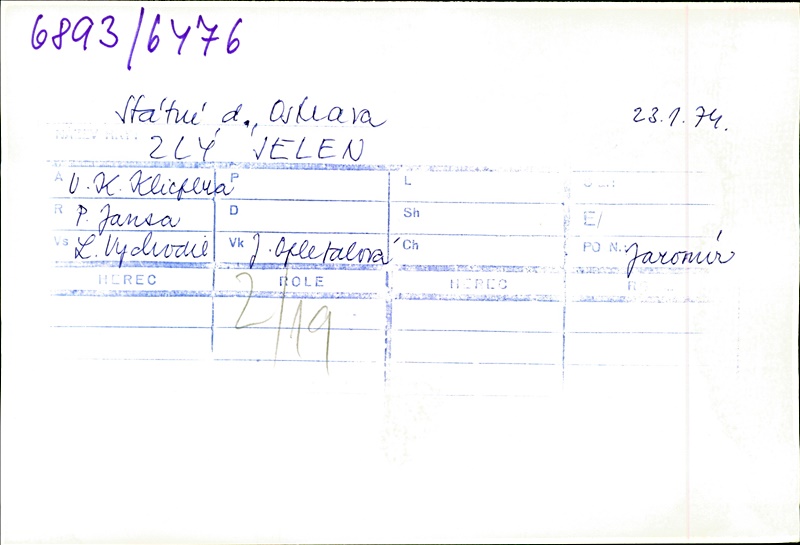 6893/6476
Státní d., Ostrava 23.1.74.
ZLÝ JELEN
A V. K. Klicpera P L
R P. Jansa D Sh E/
Vs L. Vychodil Vk J. Opletalová Ch PO N.: Jaromír
HEREC ROLE HEREC
2/19